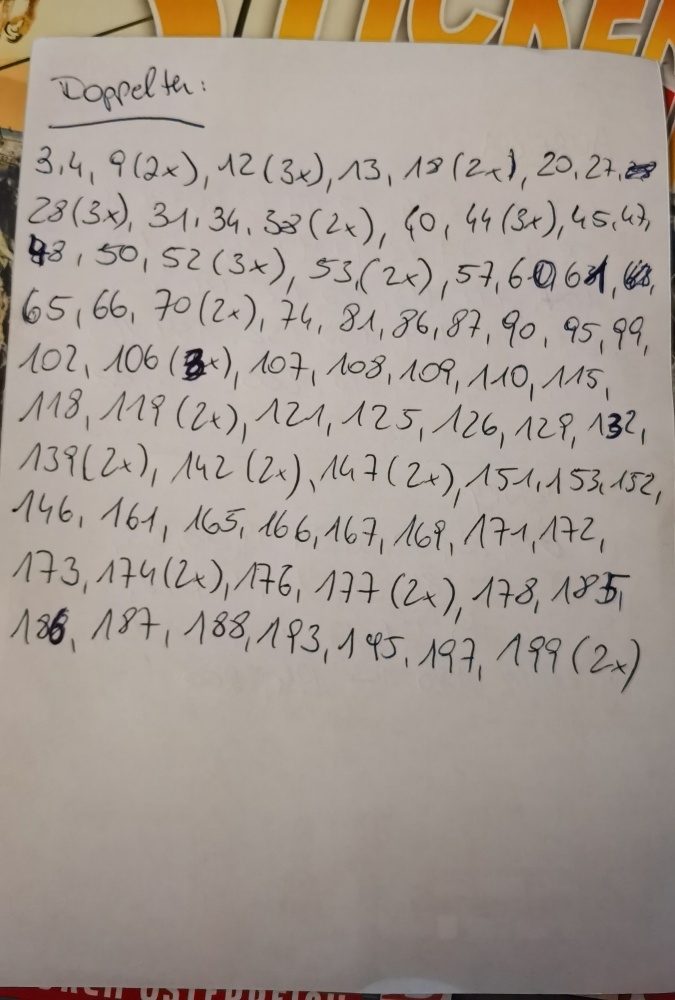 STICKER
Doppelte:
3, 4, 9 (2x), 12 (3x), 13, 18 (2x), 20, 27,
28 (3x), 31, 34, 38 (2x), 40, 44 (3x), 45, 47,
48, 50, 52 (3x), 53, (2x), 57, 60, 61,
65, 66, 70 (2x), 74, 81, 86, 87, 90, 95, 99,
102, 106 (3x), 107, 108, 109, 110, 115,
118, 119 (2x), 121, 125, 126, 129, 132,
139 (2x), 142 (2x), 147 (2x), 151, 153, 152,
146, 161, 165, 166, 167, 169, 171, 172,
173, 174 (2x), 176, 177 (2x), 178, 185,
186, 187, 188, 193, 195, 197, 199 (2x)
ÖSTERREICH